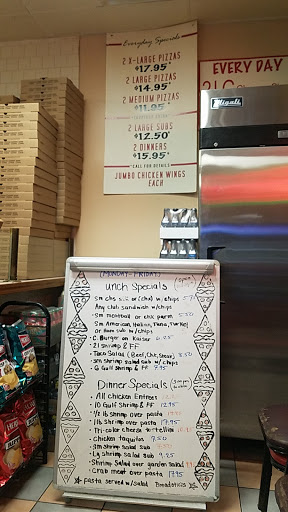 Everyday Specials
2 X-LARGE PIZZAS
$17.95*
2 LARGE PIZZAS
$14.95*
2 MEDIUM PIZZAS
$11.95*
2 LARGE SUBS
$12.50*
2 DINNERS
$15.95*
CALL FOR DETAILS
JUMBO CHICKEN WINGS
EACH
Migali
EVERY DAY
(MONDAY-FRIDAY)
unch Specials
Any club sandwich w/chips
Sm meatball or chk parm 5.50
Sm American, Italian, Tuna, Turkey
or Ham sub w/chips
C. Burger on Kaiser 6.25
21 Shrimp & FF
Taco Salad (Beef, Chk, Steak) 8.50
Sm shrimp salad sub w/chips
6 Gulf Shrimp & FF 7.95
Dinner Specials
All Chicken Entrees
10 Gulf Shrimp & FF 12.95
1/2 lb shrimp over pasta
1 lb shrimp over pasta 17.95
Tri-color cheese tortellini
Chicken taquitos 7.50
Sm Shrimp salad sub
Lg Shrimp salad sub 9.25
Shrimp Salad over garden salad
Crab meat over pasta 17.95
Pasta served w/salad Breadsticks